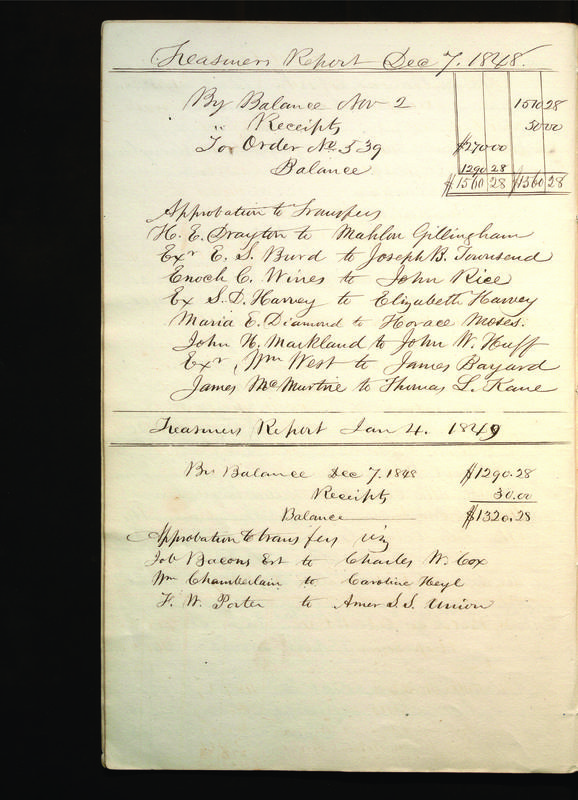 Treasurers Report Dec 7. 1848.
By Balance Nov 2 1510 28
" Receipts 50 00
To Order No. 539 $270 00
Balance 1290 28
$1560 28 $1560 28
Approbation to Transfers
H. E. Drayton to Mahlon Gillingham
Exr E. S. Burd to Joseph B. Townsend
Enoch C. Wines to John Rice
Ex S. D. Harvey to Elizabeth Harvey
Maria E. Diamond to Horace Moses.
John H. Markland to John W. Huff
Exr, Wm West to James Bayard
James McMurtrie to Thomas L. Kane
Treasurers Report Jan 4. 1849
By Balance Dec 7. 1848 $1290.28
Receipts 30.00
Balance $1320.28
Approbation to transfers viz
Job Bacons Est to Charles W. Cox
Wm Chamberlain to Caroline Heyl
F. W. Porter to Amer S. S. Union